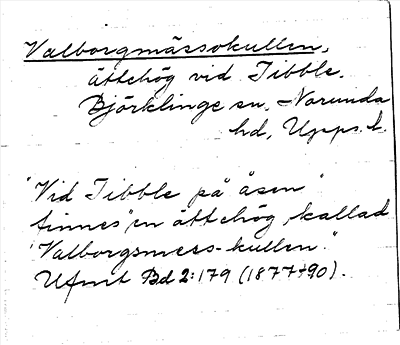 Valborgmässokullen,
ättehög vid Tibble.
Björklinge sn, Norunda
hd, Upps. l.
"Vid Tibble på åsen"
finnes "en ättehög kallad
'Valborgsmess-kullen'."
Ufmt Bd 2:179 (1877+90).